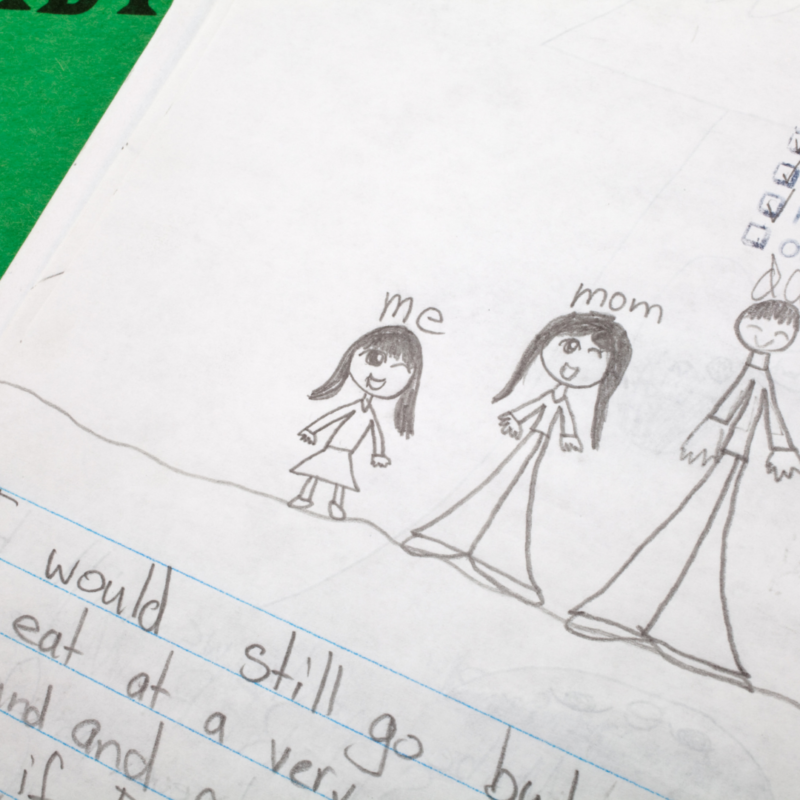 me
mom
would still go but
eat at a very
and
if